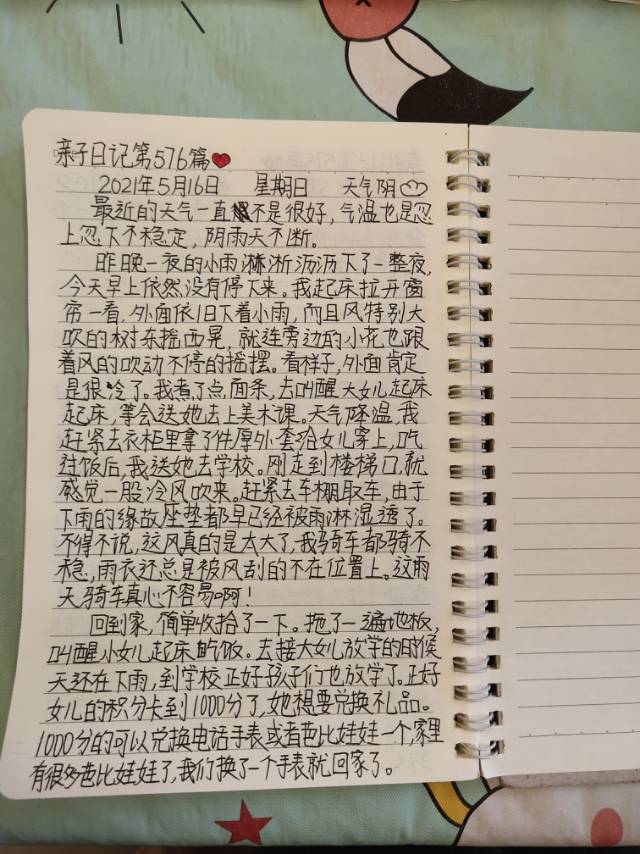 亲子日记第576篇
2021年5月16日 星期日 天气阴
最近的天气一直不是很好，气温也是忽
上忽下不稳定，阴雨天不断。
昨晚一夜的小雨淋淅沥沥下了一整夜，
今天早上依然没有停下来。我起床拉开窗
帘一看，外面依旧下着小雨，而且风特别大
吹的树东摇西晃，就连旁边的小花也跟
着风的吹动不停的摇摆。看样子，外面肯定
是很冷了。我煮了点面条，去叫醒大女儿起床
起床，等会送她去上美术课。天气降温，我
赶紧去衣柜里拿了件厚外套给女儿穿上，吃
过饭后，我送她去学校。刚走到楼梯口，就
感觉一股冷风吹来。赶紧去车棚取车，由于
下雨的缘故座垫都早已经被雨淋湿透了。
不得不说，这风真的是太大了，我骑车都骑不
稳，雨衣还总是被风刮的不在位置上。这雨
天骑车真心不容易啊！
回到家，简单收拾了一下。拖了一遍地板，
叫醒小女儿起床吃饭。去接大女儿放学的时候
天还在下雨，到学校正好孩子们也放学了。正好
女儿的积分卡到1000分了，她想要兑换礼品。
1000分的可以兑换电话手表或者芭比娃娃一个，家里
有很多芭比娃娃了，我们换了一个手表就回家了。